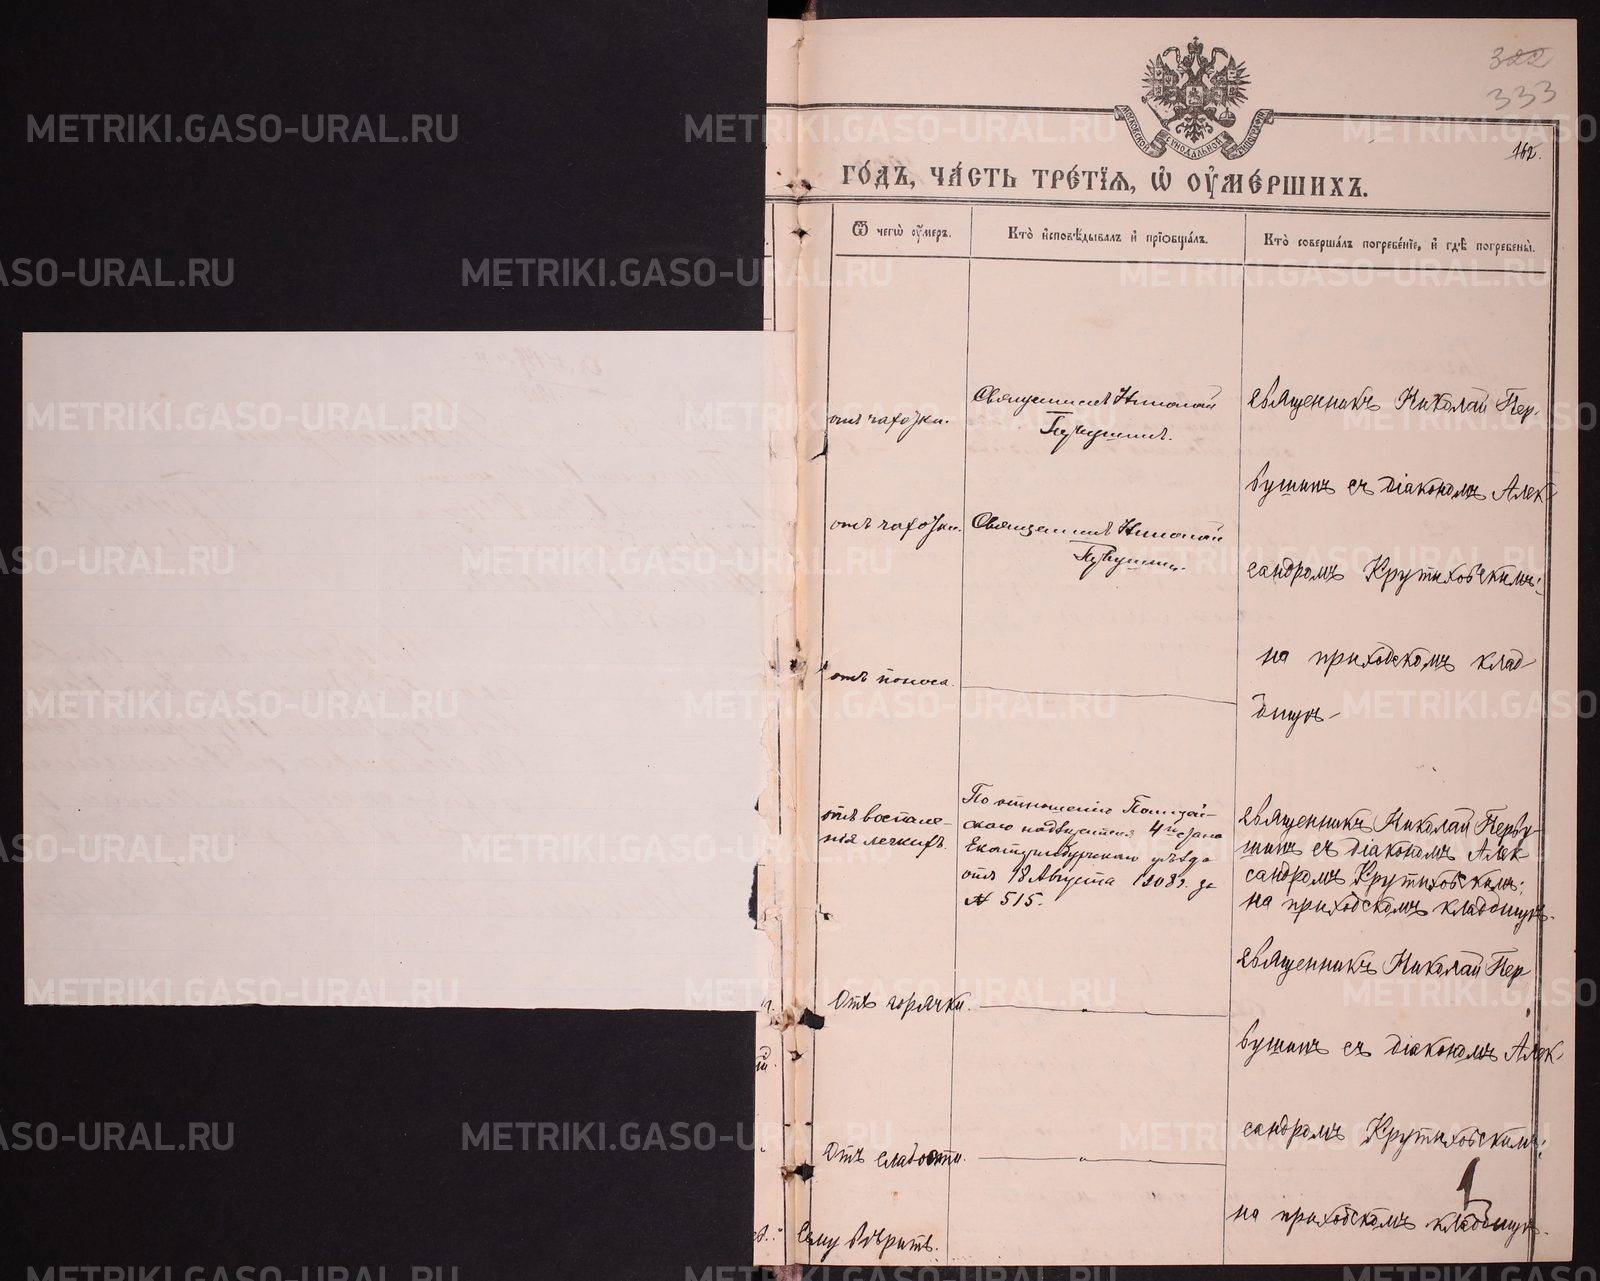 322
333
162.
МОСКОВСКОЙ СѴНОДАЛЬНОЙ ТИПОГРАФІИ
ГО́ДЪ, ЧА́СТЬ ТРЕ́ТЇѦ, Ѡ҆ ОУ҆МЕ́РШИХЪ.
Ѿ чегѡ̀ оу҆́меръ.
Кто̀ и҆сповѣ́дывалъ и҆ прїѡбща́лъ.
Кто̀ соверша́лъ погребе́нїе, и҆ гдѣ̀ погребены̀.
отъ чахотки.
Священникъ Николай
Первушинъ.
Священникъ Николай Пер-
вушинъ съ діакономъ Алек-
сандромъ Крутиховскимъ;
на приходскомъ клад-
бищѣ-
отъ чахотки.
Священникъ Николай
Первушинъ.
отъ поноса.
отъ воспале-
нія легкихъ.
По отношенію Полицей-
скаго надзирателя 4го стана
Екатеринбургскаго уѣзда
отъ 18 Августа 1908 г. за
№ 515.
Священникъ Николай Перву-
шинъ съ діакономъ Алек
сандромъ Крутиховскимъ;
на приходскомъ кладбищѣ.
Отъ горячки.
Священникъ Николай Пер
вушинъ съ діакономъ Алек-
сандромъ Крутиховскимъ;
на приходскомъ кладбищѣ.
Отъ слабости.
Сему вѣрить.
METRIKI.GASO-URAL.RU